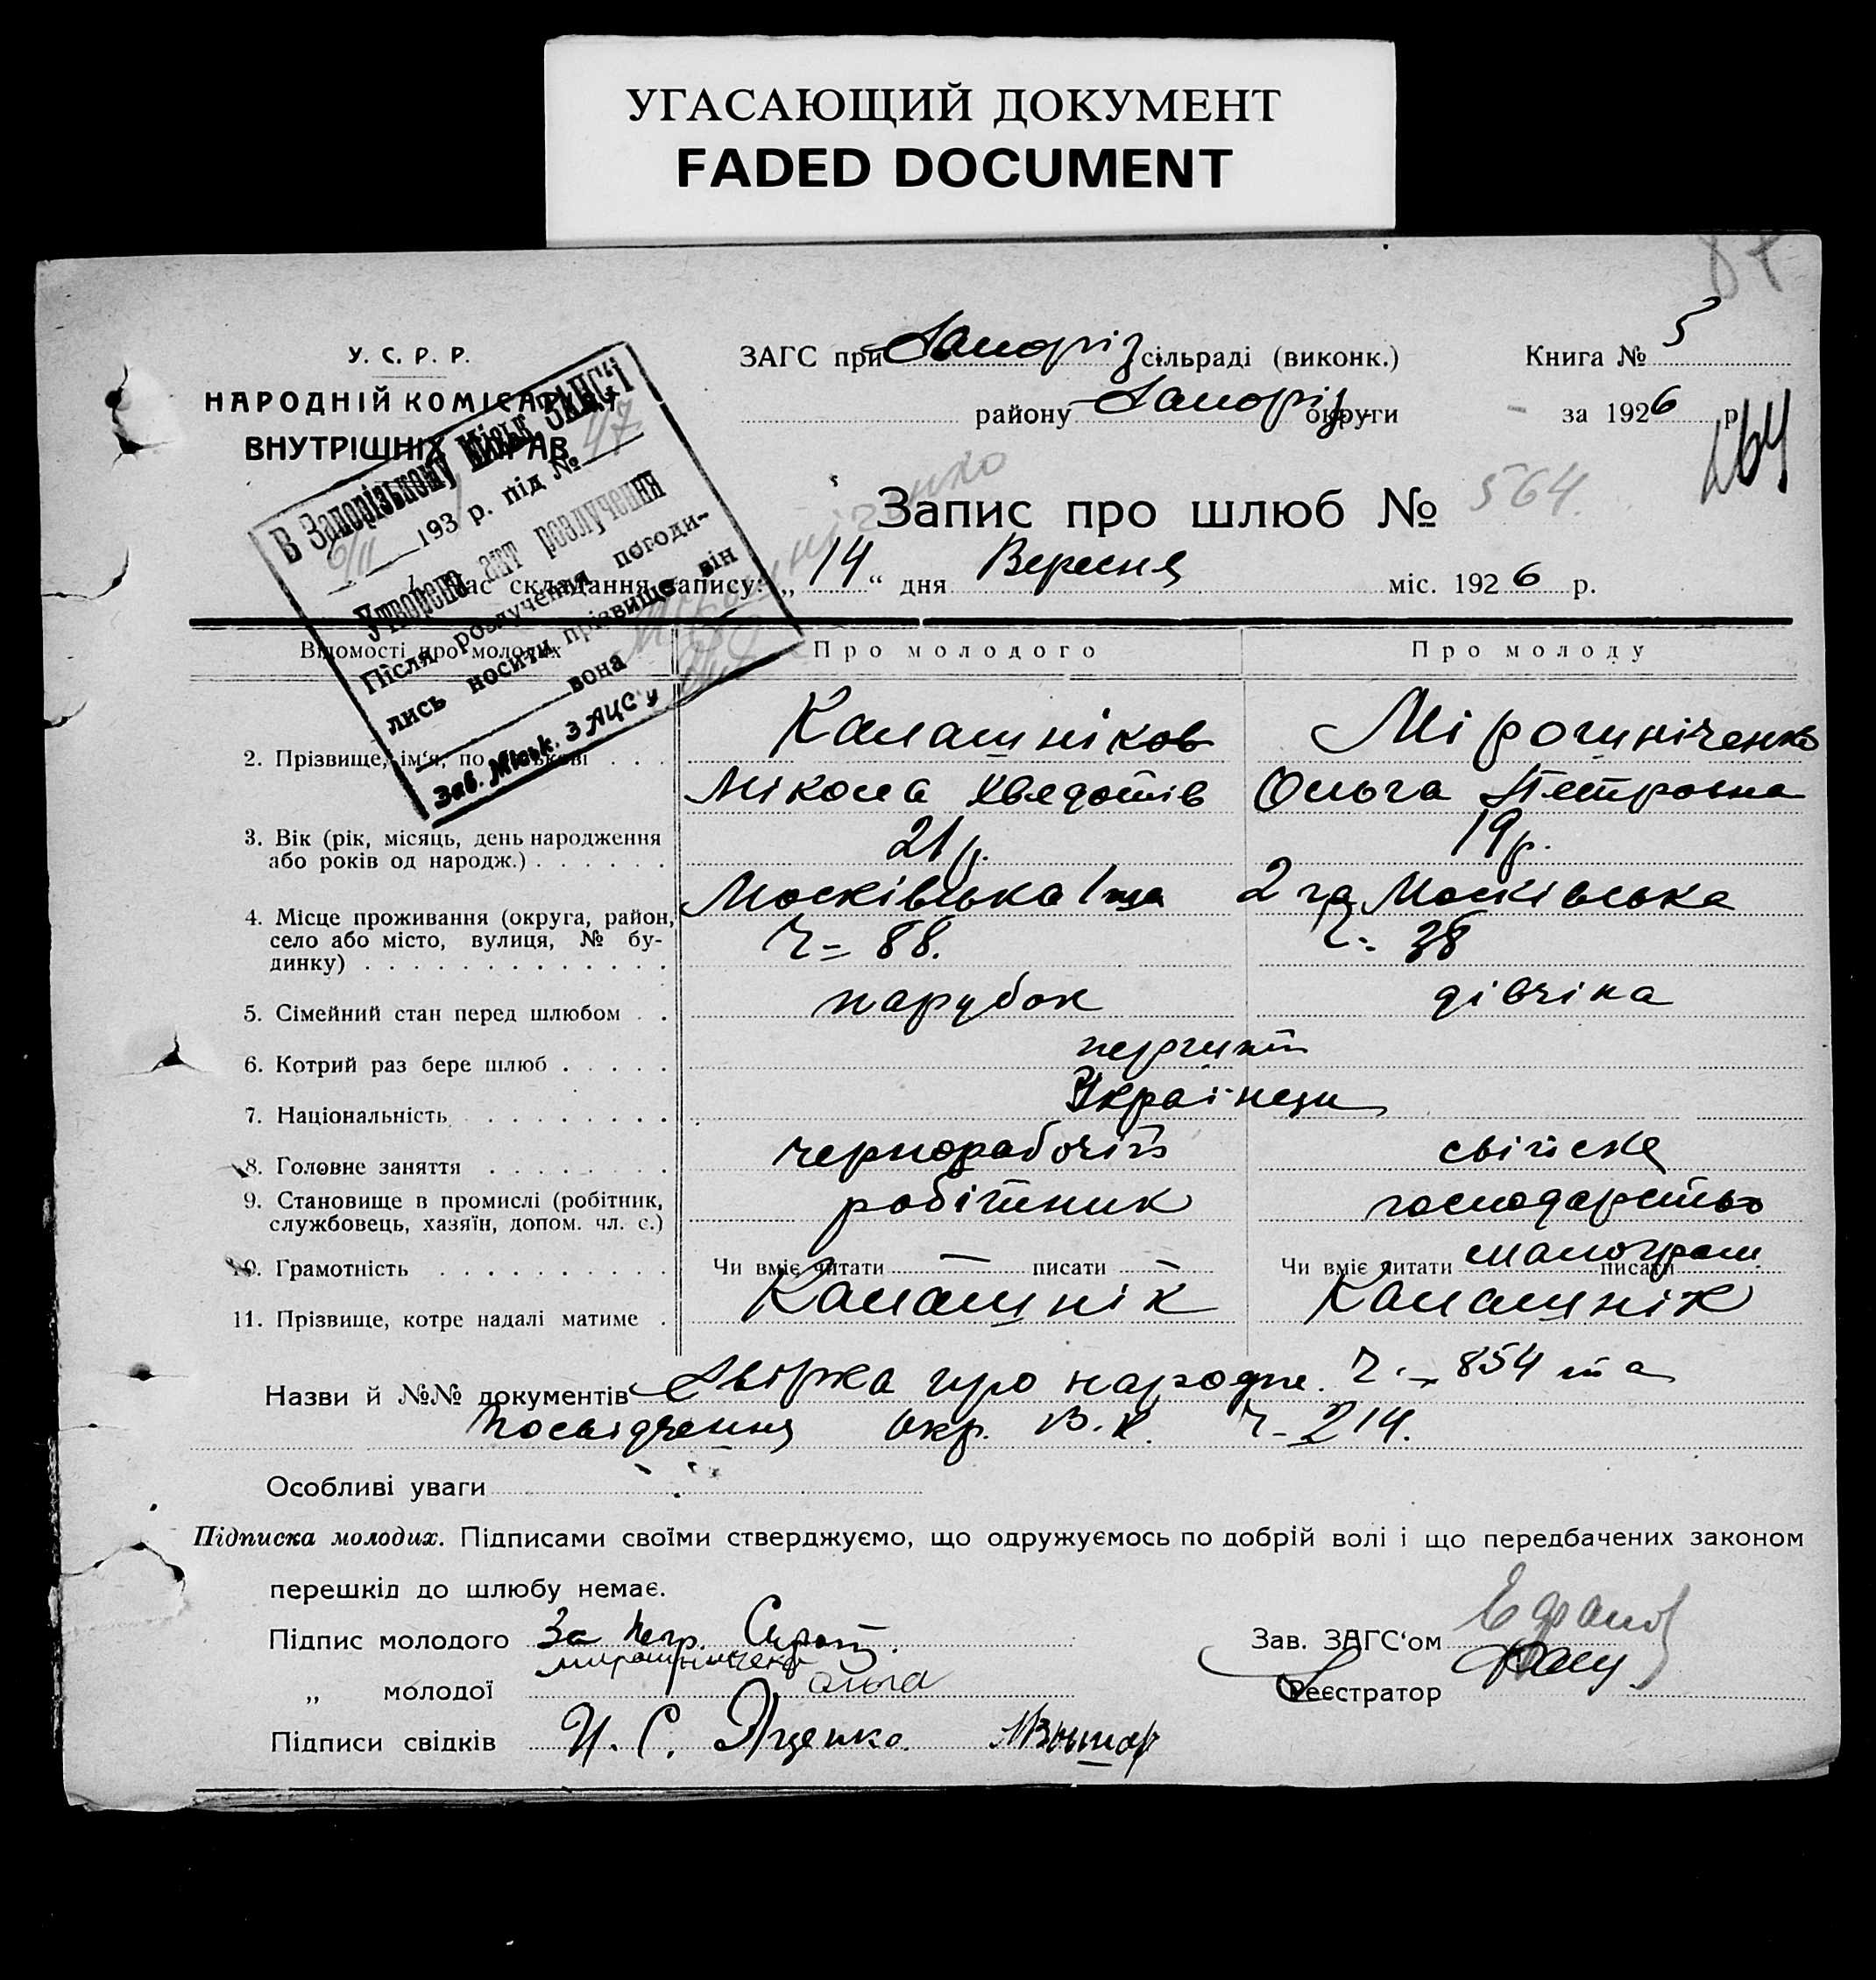 УГАСАЮЩИЙ ДОКУМЕНТ
FADED DOCUMENT
87
У. С. Р. Р.
НАРОДНІЙ КОМІСАРІЯТ
ВНУТРІШНІХ СПРАВ
ЗАГС при Запоріз сільраді (виконк.)
Книга № 5
району Запоріз округи
за 1926 р.
564.
Запис про шлюб №
В Запорізькому Міськ. ЗАГС'і
6/II 193 р. під № 47
Утворено акт розлучення
Після розлучення погоди-
лись носити прізвище він
вона
Зав. Міськ. ЗАЦС'у
1. Час складання запису: „ 14 “ дня Вересня міс. 1926 р.
Відомості про молодих
Про молодого
Про молоду
2. Прізвище, ім'я, по батькові . . .
Калашніков
Мірошніченко
Мікола Хведотів
Ольга Петровна
3. Вік (рік, місяць, день народження
або років од народж.) . . . . . .
21 р.
19 р.
4. Місце проживання (округа, район,
село або місто, вулиця, № бу-
динку) . . . . . . . . . . . . .
Московська 1ша
ч= 88.
2га Московська
ч= 38
5. Сімейний стан перед шлюбом . .
парубок
дівчіна
6. Котрий раз бере шлюб . . . . .
перший
7. Національність . . . . . . . . .
Українци
8. Головне заняття . . . . . . . .
чернорабочій
свійске
9. Становище в промислі (робітник,
службовець, хазяїн, допом. чл. с.)
робітник
господарство
10. Грамотність . . . . . . . . . .
Чи вміє читати — писати —
Чи вміє читати малограм. писати
11. Прізвище, котре надалі матиме .
Калашнік
Калашнік
Назви й №№ документів Звірка про народж. ч. 854 та
посвідчення Окр. В.К. ч- 214.
Особливі уваги
Підписка молодих. Підписами своїми стверджуємо, що одружуємось по добрій волі і що передбачених законом
перешкід до шлюбу немає.
Підпис молодого За негр.
„ молодої Мирошниченко Ольга
Підписи свідків И. С. Яценко.
Зав. ЗАГС'ом
Реєстратор